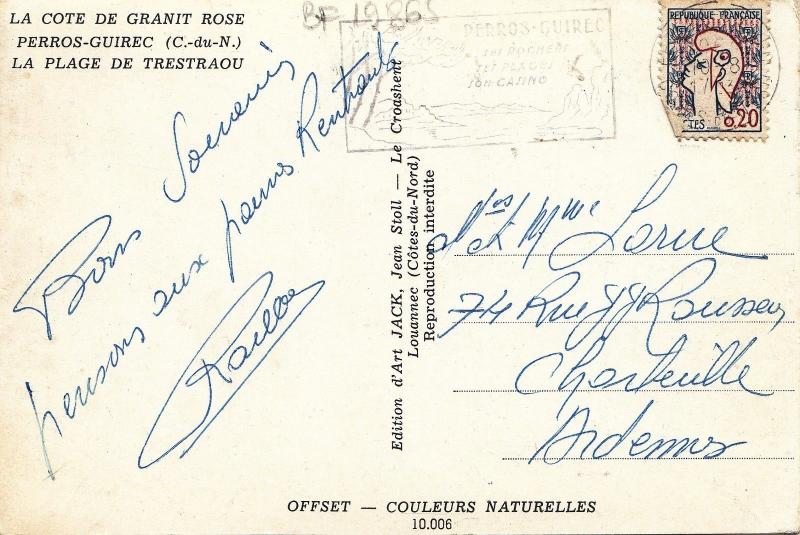 LA COTE DE GRANIT ROSE
PERROS-GUIREC (C.-du-N.)
LA PLAGE DE TRESTRAOU
BF 19865
PERROS-GUIREC
SES ROCHERS
SES PLAGES
SON CASINO
REPUBLIQUE FRANÇAISE
0,20
POSTES
Bons Souvenirs
pensons aux pauvres Rentrants
Edition d'Art JACK, Jean Stoll — Le Croashent
Louannec (Côtes-du-Nord)
Reproduction interdite
et Mme Lorne
74 Rue JJ Rousseau
Charleville
Ardennes
OFFSET — COULEURS NATURELLES
10.006